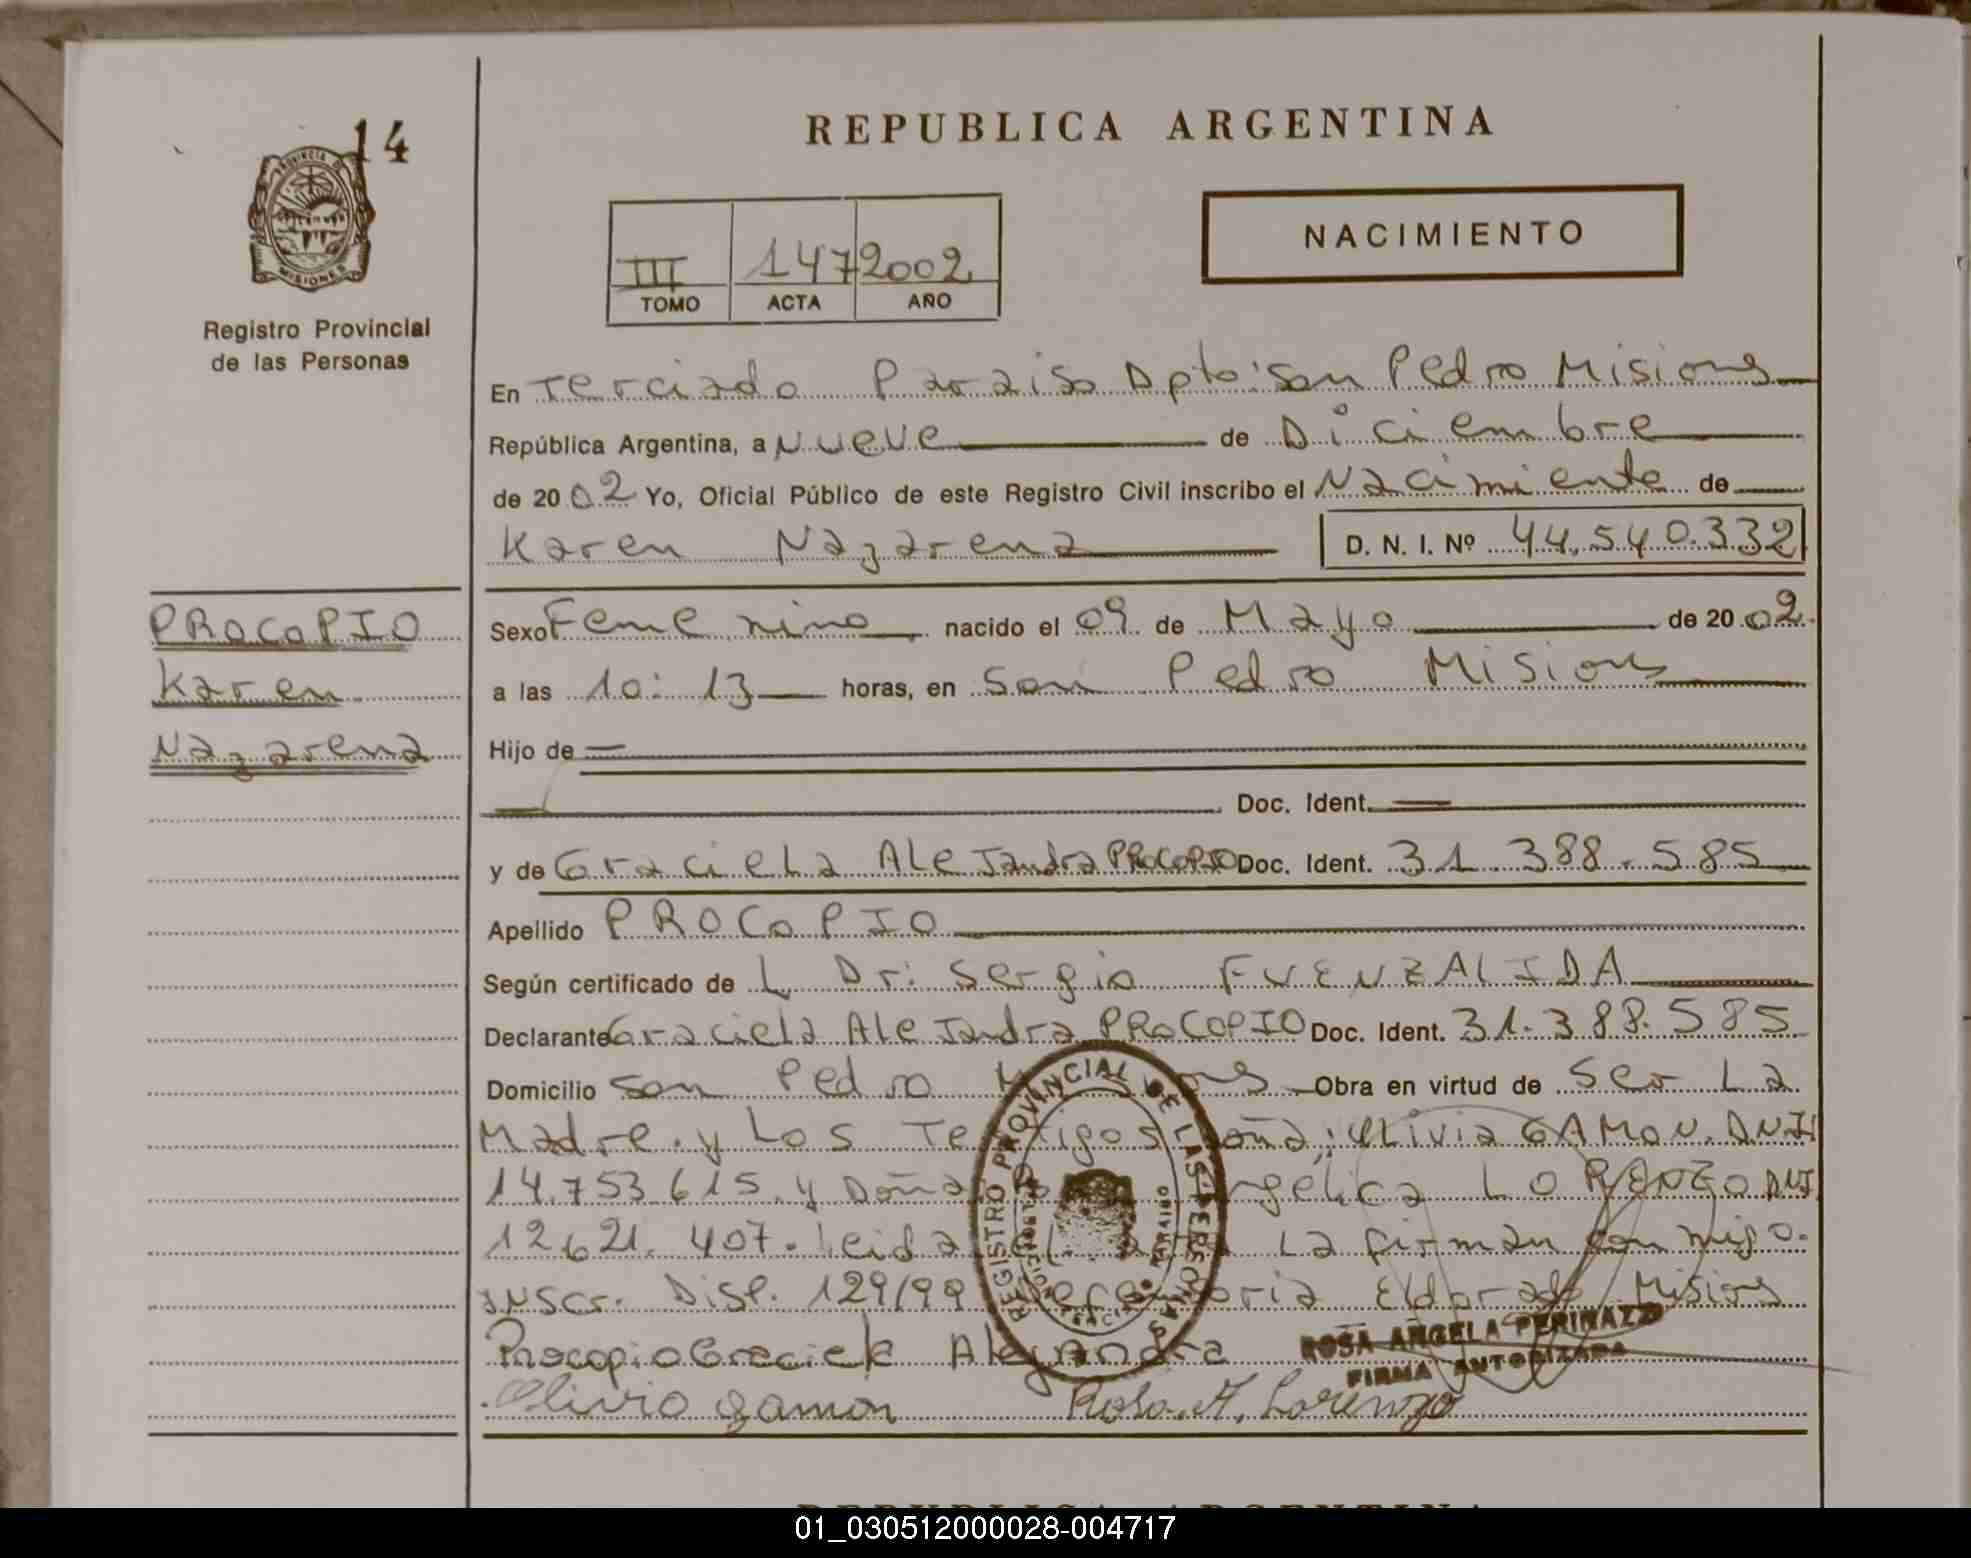 14
PROVINCIA DE
MISIONES
Registro Provincial
de las Personas
REPUBLICA ARGENTINA
III 147 2002
TOMO ACTA AÑO
NACIMIENTO
En Terciado Paraiso Dpto: San Pedro Misiones
República Argentina, a Nueve de Diciembre
de 2002 Yo, Oficial Público de este Registro Civil inscribo el Nacimiento de
Karen Nazarena D. N. I. Nº 44.540.332
PROCOPIO
Karen
Nazarena
Sexo Femenino nacido el 09 de Mayo de 2002.
a las 10:13 horas, en San Pedro Misiones
Hijo de
Doc. Ident.
y de Graciela Alejandra PROCOPIO Doc. Ident. 31.388.585
Apellido PROCOPIO
Según certificado de L Dr: Sergio FUENZALIDA
Declarante Graciela Alejandra PROCOPIO Doc. Ident. 31.388.585
Domicilio San Pedro Obra en virtud de Ser La
Madre. y Los Testigos Doña: Olivia GAMON. DNI
14.753.615. y Doña Angélica LORENZO DNI
12.621.407. Leida La firman conmigo.
Inscr. Disp. 129/99 Defensoria Eldorado Misiones
Procopio Graciela Alejandra
ROSA ANGELA PERINAZZO
FIRMA AUTORIZADA
Olivia gamon Rosa. A. Lorenzo
REGISTRO PROVINCIAL DE LAS PERSONAS
REPUBLICA ARGENTINA
01_030512000028-004717